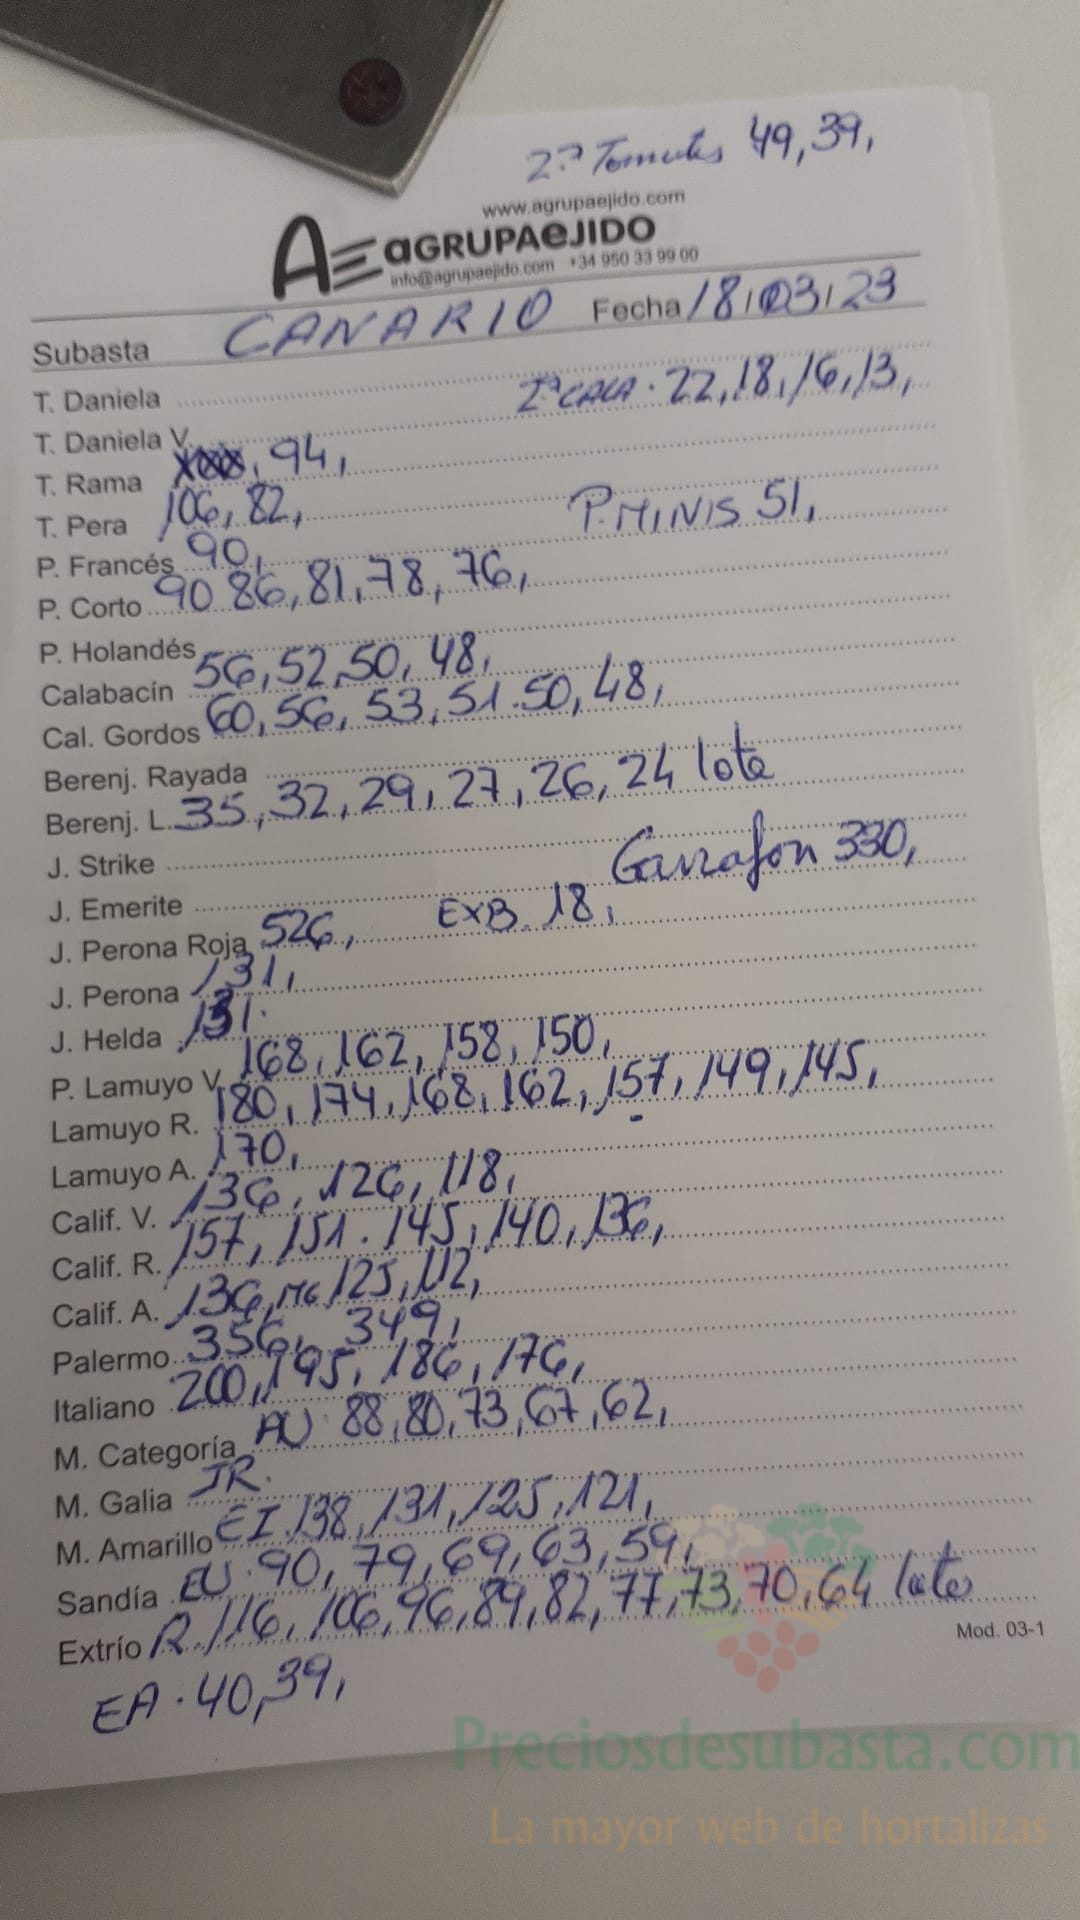 2ª Tomates 49,39,
www.agrupaejido.com
AE aGRUPAeJIDO
info@agrupaejido.com +34 950 33 99 00
Subasta CANARIO Fecha 18/03/23
T. Daniela
2ª CALA. 22,18,16,13,
T. Daniela V.
T. Rama , 94,
T. Pera 106, 82,
P. MINIS 51,
P. Francés 90,
P. Corto 90 86, 81, 78, 76,
P. Holandés
Calabacín 56, 52, 50, 48,
Cal. Gordos 60, 56, 53, 51. 50, 48,
Berenj. Rayada
Berenj. L. 35, 32, 29, 27, 26, 24 lote
J. Strike
Garrafon 330,
J. Emerite
J. Perona Roja 526, EXB. 18,
J. Perona 131,
J. Helda 131.
P. Lamuyo V. 168, 162, 158, 150,
Lamuyo R. 180, 174, 168, 162, 157, 149, 145,
Lamuyo A. 170,
Calif. V. 136, 126, 118,
Calif. R. 157, 151. 145, 140, 136,
Calif. A. 136, 125, 112,
Palermo 356, 349,
Italiano 200, 195, 186, 176,
M. Categoría AU 88, 80, 73, 67, 62,
M. Galia JR.
M. Amarillo EI 138, 131, 125, 121,
Sandía EU. 90, 79, 69, 63, 59,
Extrío R. 116, 106, 96, 89, 82, 77, 73, 70, 64 lotes
Mod. 03-1
EA. 40, 39,
Preciosdesubasta.com
La mayor web de hortalizas